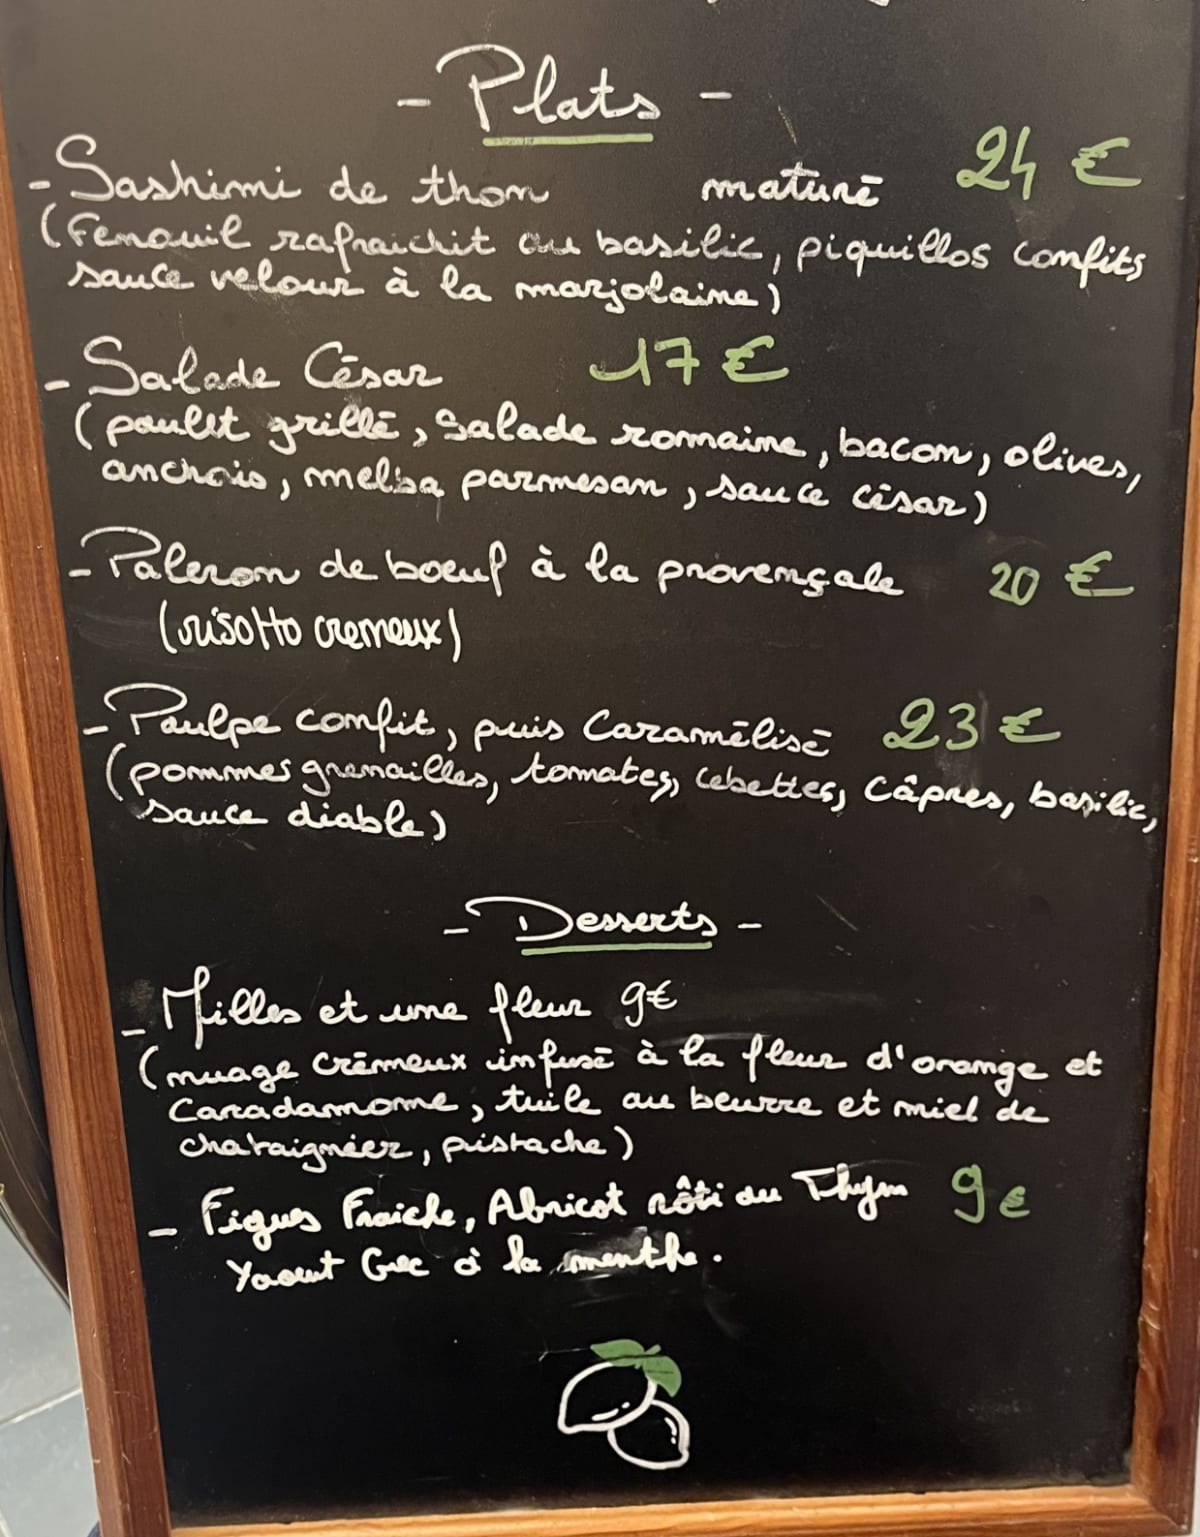 - Plats -
- Sashimi de thon maturé 24 €
(Fenouil rafraichit au basilic, piquillos confits
sauce velour à la marjolaine)
- Salade César 17 €
(poulet grillé, salade romaine, bacon, olives,
anchois, melba parmesan, sauce césar)
- Paleron de boeuf à la provençale 20 €
(risotto cremeux)
- Poulpe confit, puis Caramélisé 23 €
(pommes grenailles, tomates, cebettes, câpres, basilic,
sauce diable)
- Desserts -
- Milles et une fleur 9€
(nuage crémeux infusé à la fleur d'orange et
Caradamome, tuile au beurre et miel de
chataignéer, pistache)
- Figues Fraiche, Abricot rôti au Thym 9€
Yaourt Grec à la menthe.